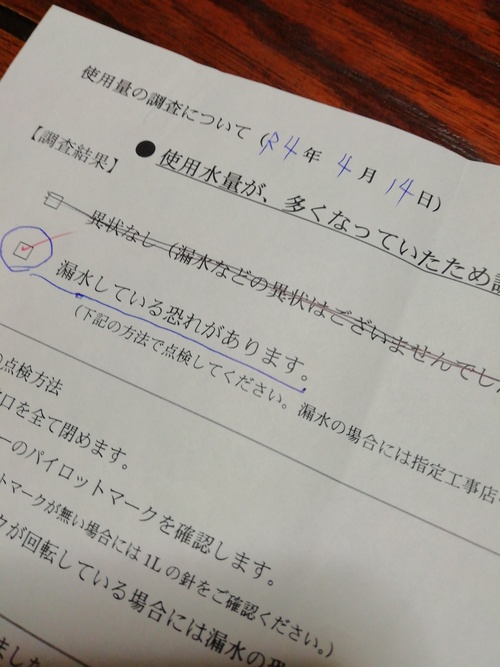 使用量の調査について (R4年 4月 14日)
【調査結果】
●使用水量が、多くなっていたため
□ 異状なし (漏水などの異状はございませんでし
☑ 漏水している恐れがあります。
(下記の方法で点検してください。漏水の場合には指定工事店
の点検方法
口を全て閉めます。
ーのパイロットマークを確認します。
トマークが無い場合には1Lの針をご確認ください。)
クが回転している場合には漏水の恐
ました